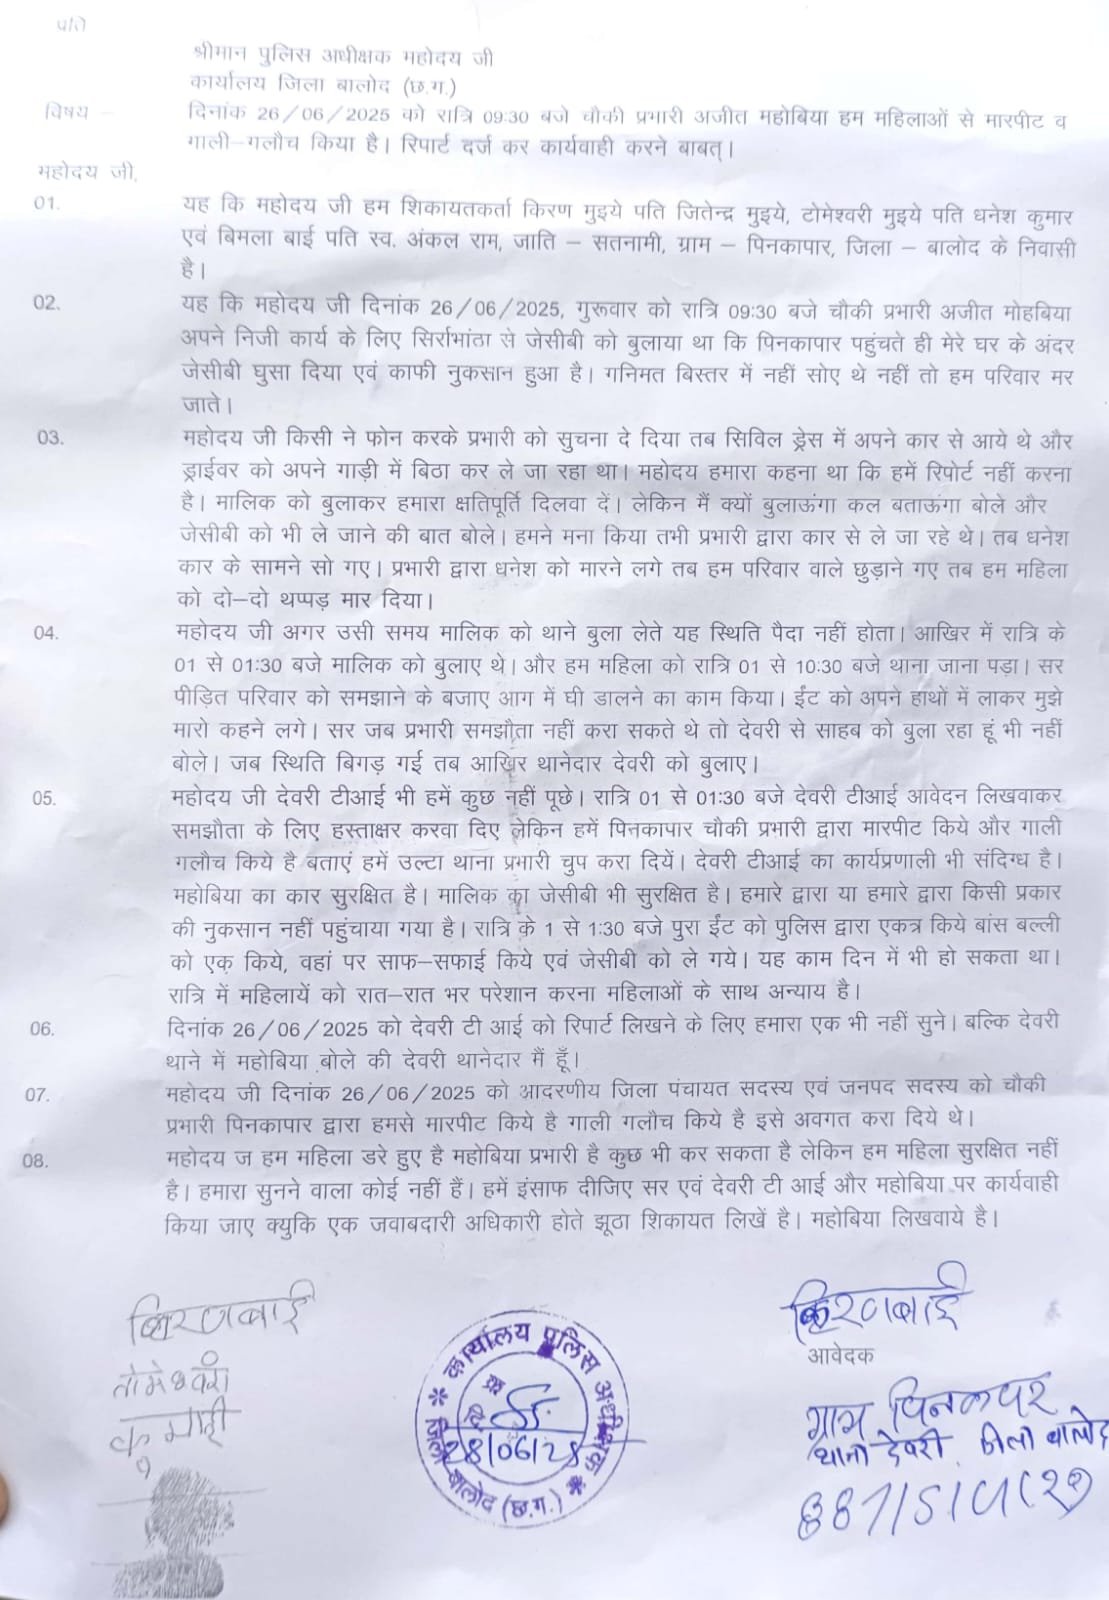 प्रति
श्रीमान पुलिस अधीक्षक महोदय जी
कार्यालय जिला बालोद (छ.ग.)
विषय – दिनांक 26/06/2025 को रात्रि 09:30 बजे चौकी प्रभारी अजीत महोबिया हम महिलाओं से मारपीट व
गाली–गलौच किया है। रिपार्ट दर्ज कर कार्यवाही करने बाबत्।
महोदय जी,
01. यह कि महोदय जी हम शिकायतकर्ता किरण मुइये पति जितेन्द्र मुइये, टोमेश्वरी मुइये पति धनेश कुमार
एवं बिमला बाई पति स्व. अंकल राम, जाति – सतनामी, ग्राम – पिनकापार, जिला – बालोद के निवासी
है।
02. यह कि महोदय जी दिनांक 26/06/2025, गुरूवार को रात्रि 09:30 बजे चौकी प्रभारी अजीत मोहबिया
अपने निजी कार्य के लिए सिर्राभांठा से जेसीबी को बुलाया था कि पिनकापार पहुंचते ही मेरे घर के अंदर
जेसीबी घुसा दिया एवं काफी नुकसान हुआ है। गनिमत बिस्तर में नहीं सोए थे नहीं तो हम परिवार मर
जाते।
03. महोदय जी किसी ने फोन करके प्रभारी को सुचना दे दिया तब सिविल ड्रेस में अपने कार से आये थे और
ड्राईवर को अपने गाड़ी में बिठा कर ले जा रहा था। महोदय हमारा कहना था कि हमें रिपोर्ट नहीं करना
है। मालिक को बुलाकर हमारा क्षतिपूर्ति दिलवा दें। लेकिन मैं क्यों बुलाऊंगा कल बताऊंगा बोले और
जेसीबी को भी ले जाने की बात बोले। हमने मना किया तभी प्रभारी द्वारा कार से ले जा रहे थे। तब धनेश
कार के सामने सो गए। प्रभारी द्वारा धनेश को मारने लगे तब हम परिवार वाले छुड़ाने गए तब हम महिला
को दो–दो थप्पड़ मार दिया।
04. महोदय जी अगर उसी समय मालिक को थाने बुला लेते यह स्थिति पैदा नहीं होता। आखिर में रात्रि के
01 से 01:30 बजे मालिक को बुलाए थे। और हम महिला को रात्रि 01 से 10:30 बजे थाना जाना पड़ा। सर
पीड़ित परिवार को समझाने के बजाए आग में घी डालने का काम किया। ईंट को अपने हाथों में लाकर मुझे
मारो कहने लगे। सर जब प्रभारी समझौता नहीं करा सकते थे तो देवरी से साहब को बुला रहा हूं भी नहीं
बोले। जब स्थिति बिगड़ गई तब आखिर थानेदार देवरी को बुलाए।
05. महोदय जी देवरी टीआई भी हमें कुछ नहीं पूछे। रात्रि 01 से 01:30 बजे देवरी टीआई आवेदन लिखवाकर
समझौता के लिए हस्ताक्षर करवा दिए लेकिन हमें पिनकापार चौकी प्रभारी द्वारा मारपीट किये और गाली
गलौच किये है बताएं हमें उल्टा थाना प्रभारी चुप करा दियें। देवरी टीआई का कार्यप्रणाली भी संदिग्ध है।
महोबिया का कार सुरक्षित है। मालिक का जेसीबी भी सुरक्षित है। हमारे द्वारा या हमारे द्वारा किसी प्रकार
की नुकसान नहीं पहुंचाया गया है। रात्रि के 1 से 1:30 बजे पुरा ईंट को पुलिस द्वारा एकत्र किये बांस बल्ली
को एक किये, वहां पर साफ–सफाई किये एवं जेसीबी को ले गये। यह काम दिन में भी हो सकता था।
रात्रि में महिलायें को रात–रात भर परेशान करना महिलाओं के साथ अन्याय है।
06. दिनांक 26/06/2025 को देवरी टी आई को रिपार्ट लिखने के लिए हमारा एक भी नहीं सुने। बल्कि देवरी
थाने में महोबिया बोले की देवरी थानेदार मैं हूँ।
07. महोदय जी दिनांक 26/06/2025 को आदरणीय जिला पंचायत सदस्य एवं जनपद सदस्य को चौकी
प्रभारी पिनकापार द्वारा हमसे मारपीट किये है गाली गलौच किये है इसे अवगत करा दिये थे।
08. महोदय ज हम महिला डरे हुए है महोबिया प्रभारी है कुछ भी कर सकता है लेकिन हम महिला सुरक्षित नहीं
है। हमारा सुनने वाला कोई नहीं हैं। हमें इंसाफ दीजिए सर एवं देवरी टी आई और महोबिया पर कार्यवाही
किया जाए क्युकि एक जवाबदारी अधिकारी होते झूठा शिकायत लिखें है। महोबिया लिखवाये है।
किरणबाई
किरणबाई
आवेदक
कार्यालय पुलिस अधीक्षक
28/06/25
जिला-बालोद (छ.ग.)
ग्राम पिनकापर
थाना देवरी, जिला बालोद